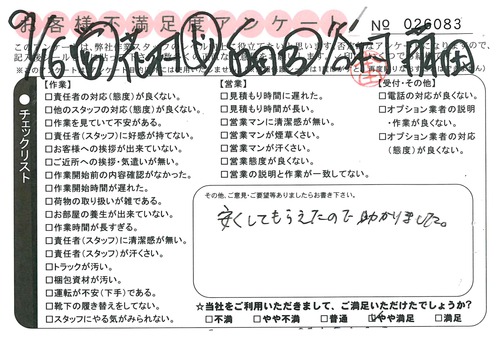 お客様不満足度アンケート
No 026083
このアンケートは、弊社作業スタッフのレベル向上に役立てたいと思います。
9/6
チェックリスト
【作業】
□責任者の対応(態度)が良くない。
□他のスタッフの対応(態度)が良くない。
□作業を見ていて不安がある。
□責任者(スタッフ)に好感が持てない。
□お客様への挨拶が出来ていない。
□ご近所への挨拶・気遣いが無い。
□作業開始前の内容確認がなかった。
□作業開始時間が遅れた。
□荷物の取り扱いが雑である。
□お部屋の養生が出来ていない。
□作業時間が長すぎる。
□責任者(スタッフ)に清潔感が無い。
□責任者(スタッフ)が汗くさい。
□トラックが汚い。
□梱包資材が汚い。
□運転が不安(下手)である。
□靴下の履き替えをしてない。
□スタッフにやる気がみられない。
【営業】
□見積もり時間に遅れた。
□見積もり時間が長い。
□営業マンに清潔感が無い。
□営業マンが煙草くさい。
□営業マンが汗くさい。
□営業態度が良くない。
□営業の説明と作業が一致してない。
【受付・その他】
□電話の対応が良くない。
□オプション業者の説明
・作業が良くない。
□オプション業者の対応
(態度)が良くない。
その他、ご意見・ご要望等ありましたらお書き下さい。
安くしてもらえたので助かりました。
★当社をご利用いただきまして、ご満足いただけたでしょうか?
□不満 □やや不満 □普通 □やや満足 □満足